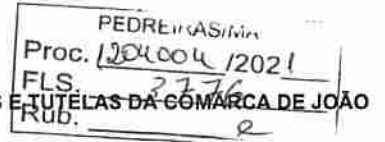 PEDREIRAS/MA
Proc. 1204004 /2021
FLS. 3776
E TUTELAS DA COMARCA DE JOÃO
Rub.